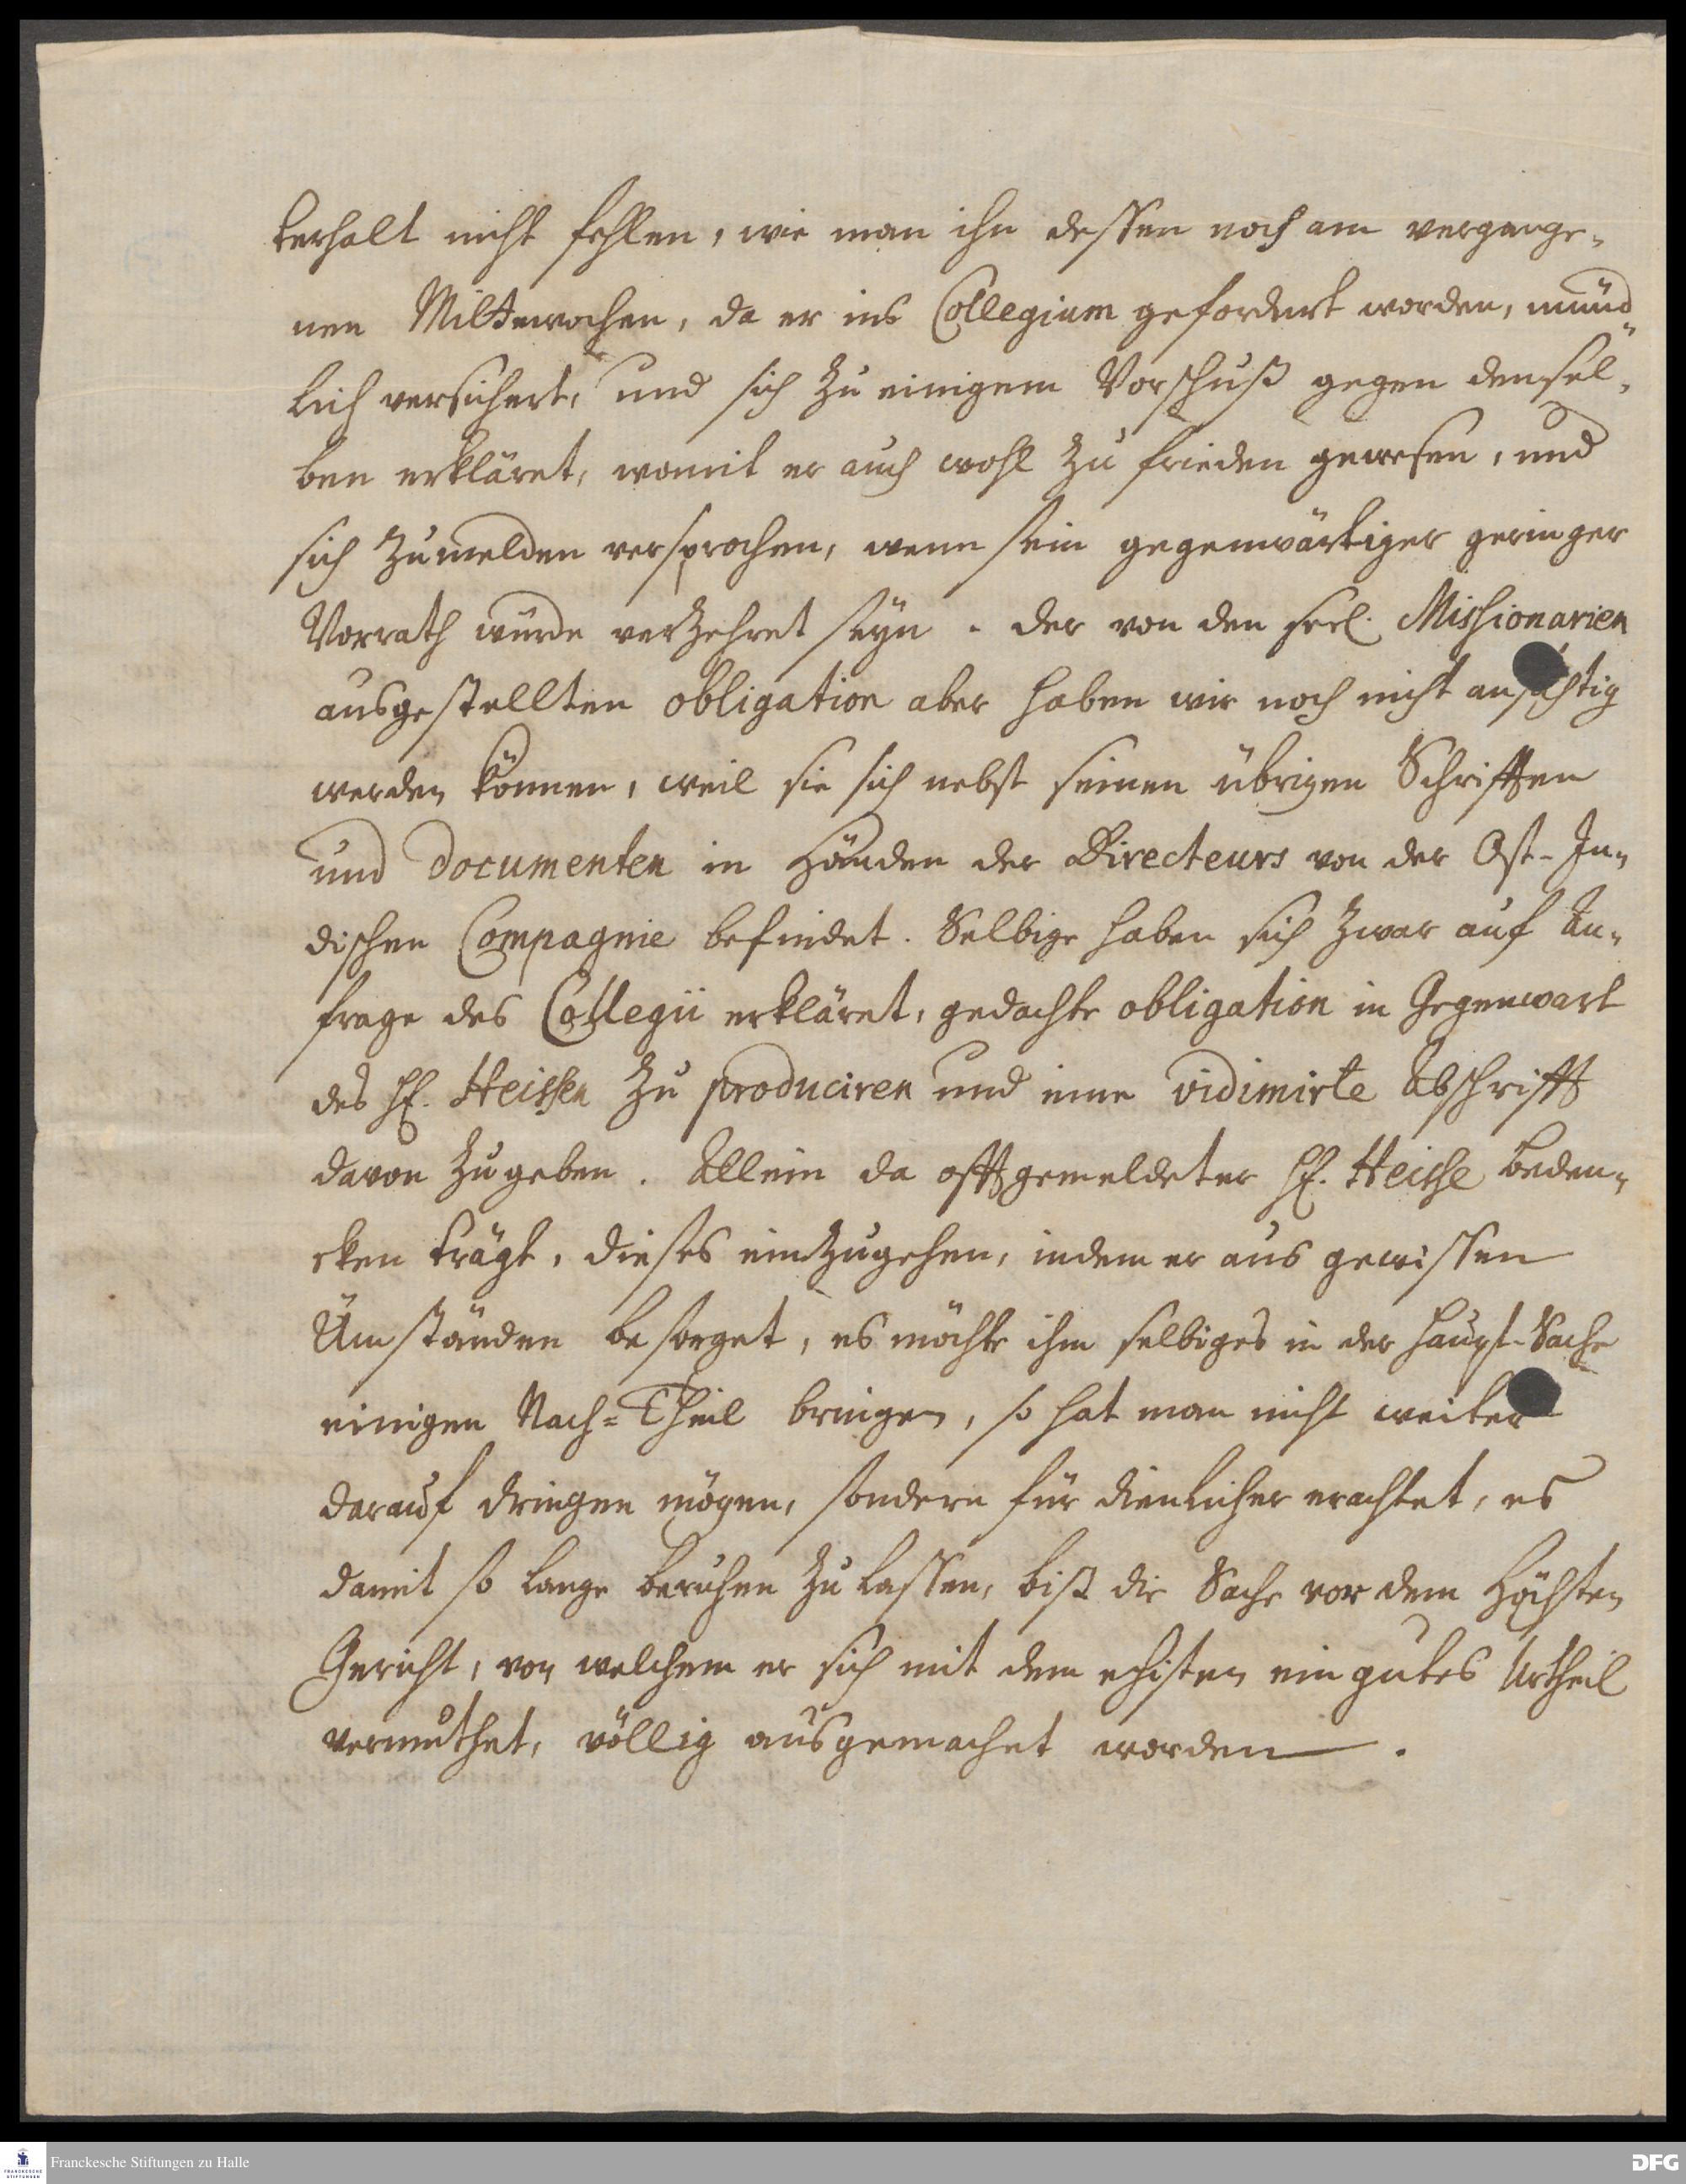 terhalt nicht fehlen, wie man ihn dessen noch am vergange-
nen Mittewochen, da er ins Collegium gefordert worden, münd-
lich versichert, und sich zu einigem Vorschuß gegen densel-
ben erkläret, womit er auch wohl zu frieden gewesen, und
sich zu melden versprochen, wenn sein gegenwärtiger geringer
Vorrath würde verzehret seyn. Der von den seel. Missionarien
ausgestellten obligation aber haben wir noch nicht ansichtig
werden können, weil sie sich nebst seinen übrigen Schrifften
und Documenten in Händen der Directeurs von der Ost-In-
dischen Compagnie befindet. Selbige haben sich zwar auf An-
frage des Collegii erkläret, gedachte obligation in Gegenwart
des H. Heissen zu produciren und eine vidimirte Abschrifft
davon zu geben. Allein da offtgemeldeter H. Heisse beden-
cken trägt, dieses einzugehen, indem er aus gewissen
Umständen besorget, es möchte ihm selbiges in der Haupt-Sache
einigen Nach=Theil bringen, so hat man nicht weiter
darauf dringen mögen, sondern für dienlicher erachtet, es
damit so lange beruhen zu lassen, biß die Sache vor dem Höchsten
Gericht, von welchem er sich mit dem ehisten ein gutes Urtheil
vermuthet, völlig ausgemachet worden.
Franckesche Stiftungen zu Halle
FRANCKESCHE STIFTUNGEN
DFG